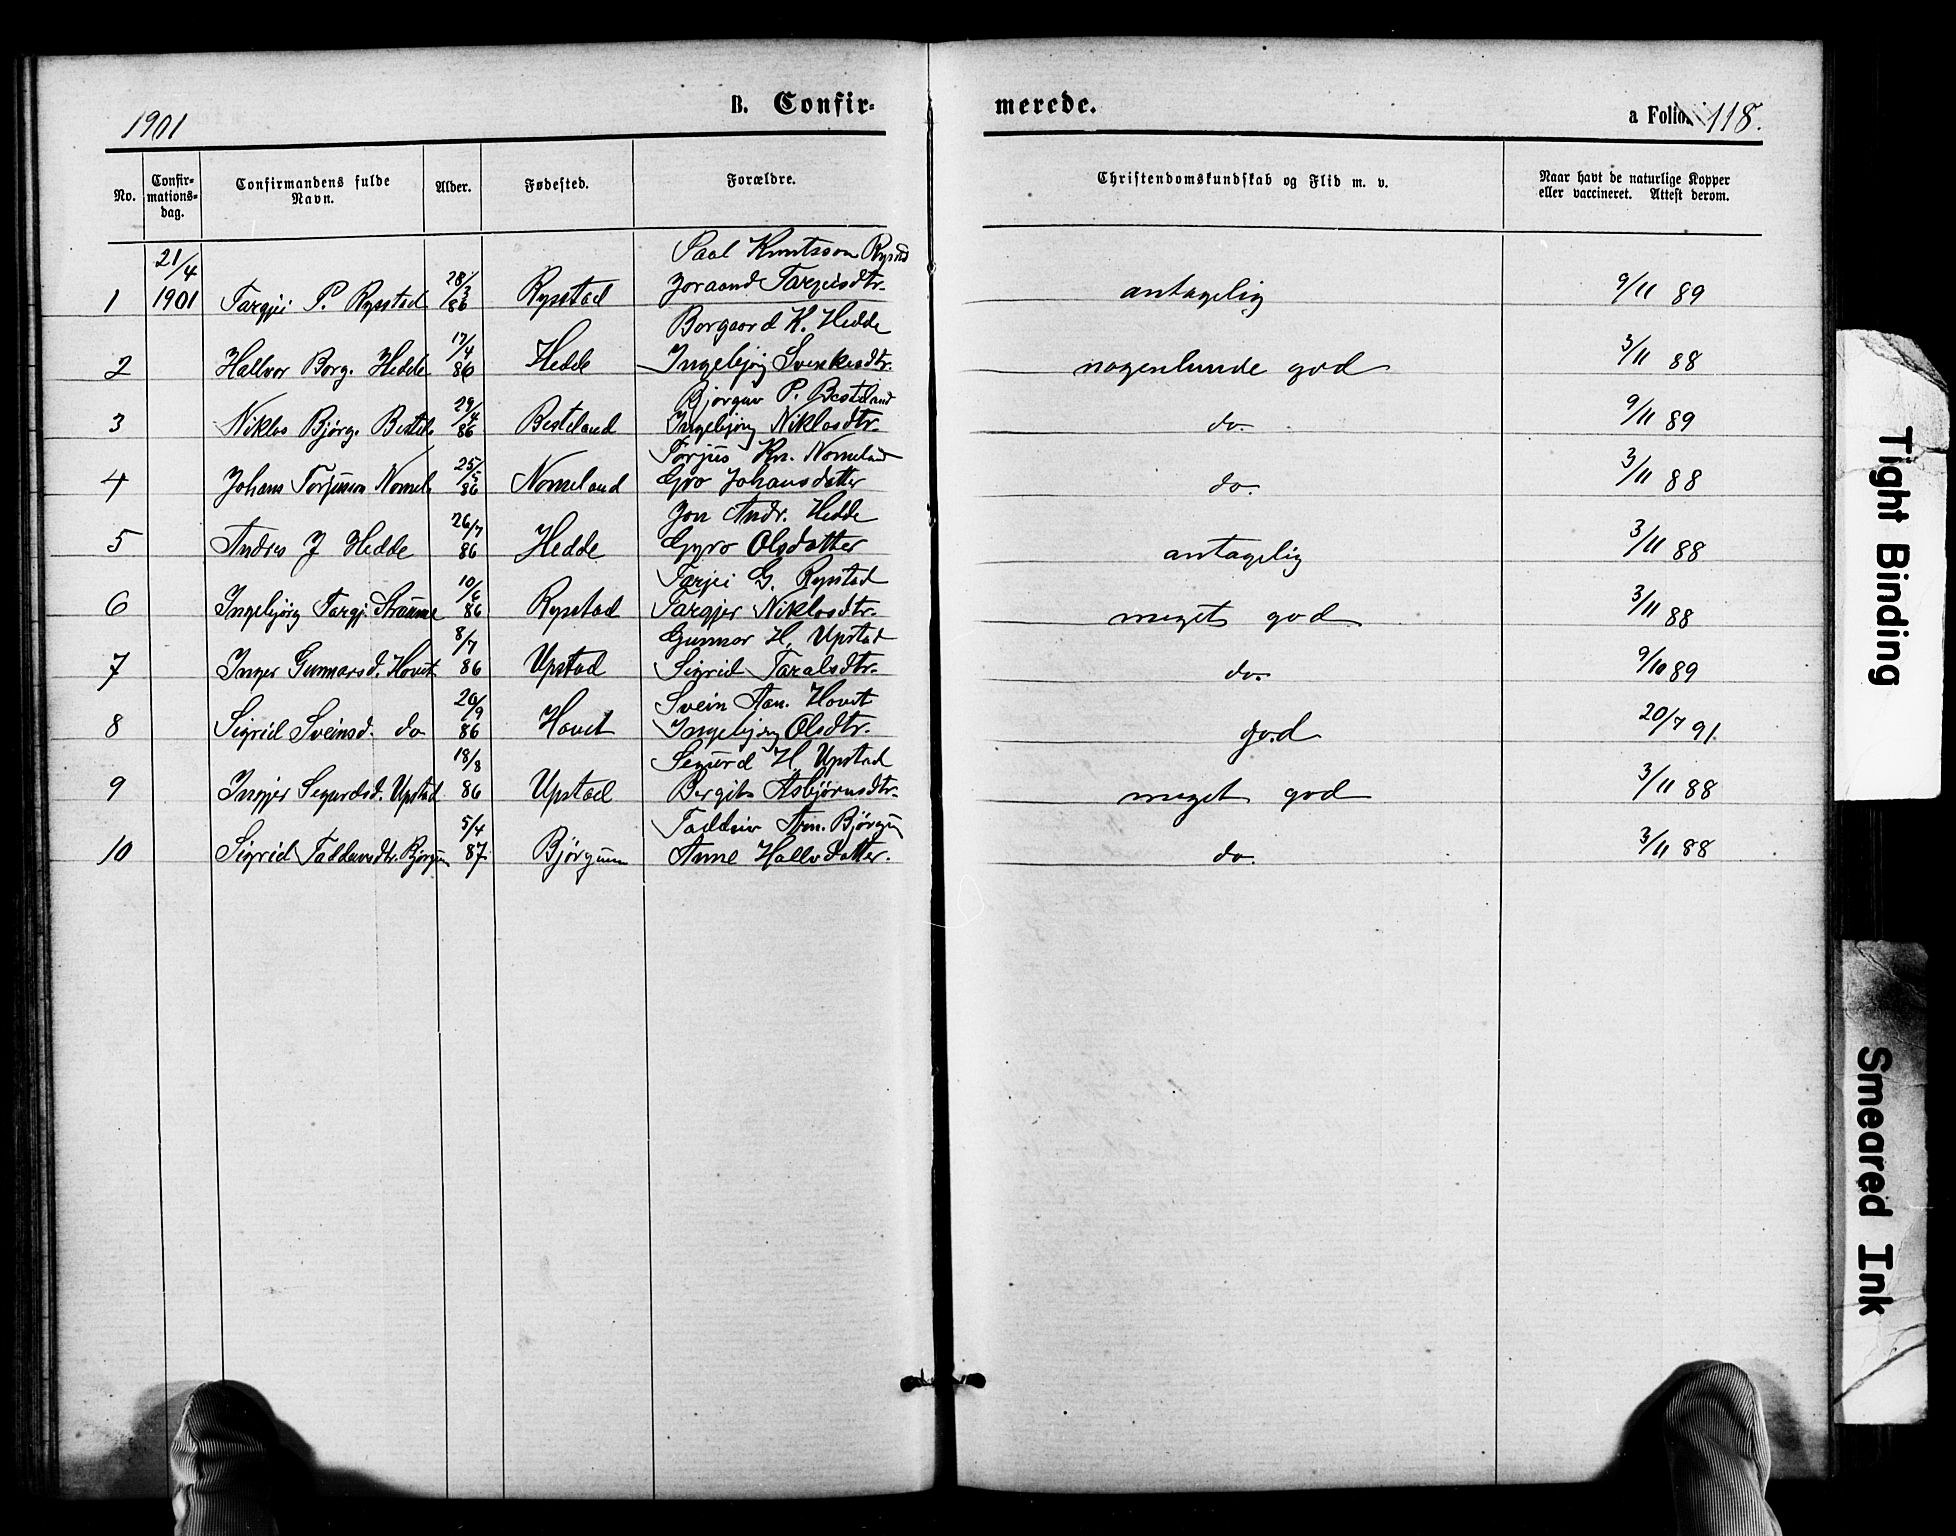 1901
B. Confir-
merede.
a Folio. 118.
No.
Confir-
mations-
dag.
Confirmandens fulde
Navn.
Alder.
Fødested.
Forældre.
Christendomskundskab og Flid m. v.
Naar havt de naturlige Kopper
eller vaccineret. Attest derom.
21/4
Paal Knutsson Rysstad
1 1901 Targjei P. Rysstad 28/3 86 Rysstad Joraand Tarjeisdtr. antagelig 9/11 89
Borgaard K. Hedde
2 Hallvor Borg. Hedde 17/4 86 Hedde Ingebjørg Svenkesdtr. nogenlunde god 3/11 88
Bjørguv P. Besteland
3 Niklos Bjørg. Bestel. 29/4 86 Besteland Ingebjørg Niklosdtr. do. 9/11 89
Torjus Kn. Nomeland
4 Johans Torjusson Nomel. 25/5 86 Nomeland Gro Johansdatter do. 3/11 88
Jon Andr. Hedde
5 Andres J Hedde 26/7 86 Hedde Gyro Olsdatter antagelig 3/11 88
Tarjei G. Rysstad
6 Ingebjørg Targj. Straume 10/6 86 Rysstad Targjer Niklosdtr. meget god 3/11 88
Gunnar H. Upstad
7 Inger Gunnarsd. Hovet 8/7 86 Upstad Sigrid Taralsdtr. do. 9/10 89
Svein Aan. Hovet
8 Sigrid Sveinsd. do 20/9 86 Hovet Ingebjørg Olsdtr. god 20/7 91.
Sigurd H. Upstad
9 Ingjer Sigurdsd. Upstad 18/8 86 Upstad Bergit Asbjørnsdtr. meget god 3/11 88
Taddeiv Arn. Bjørgum
10 Sigrid Taddeivsdtr. Bjørgum 5/4 87 Bjørgum Anne Hallvdatter. do. 3/11 88
Tight Binding
Smeared Ink